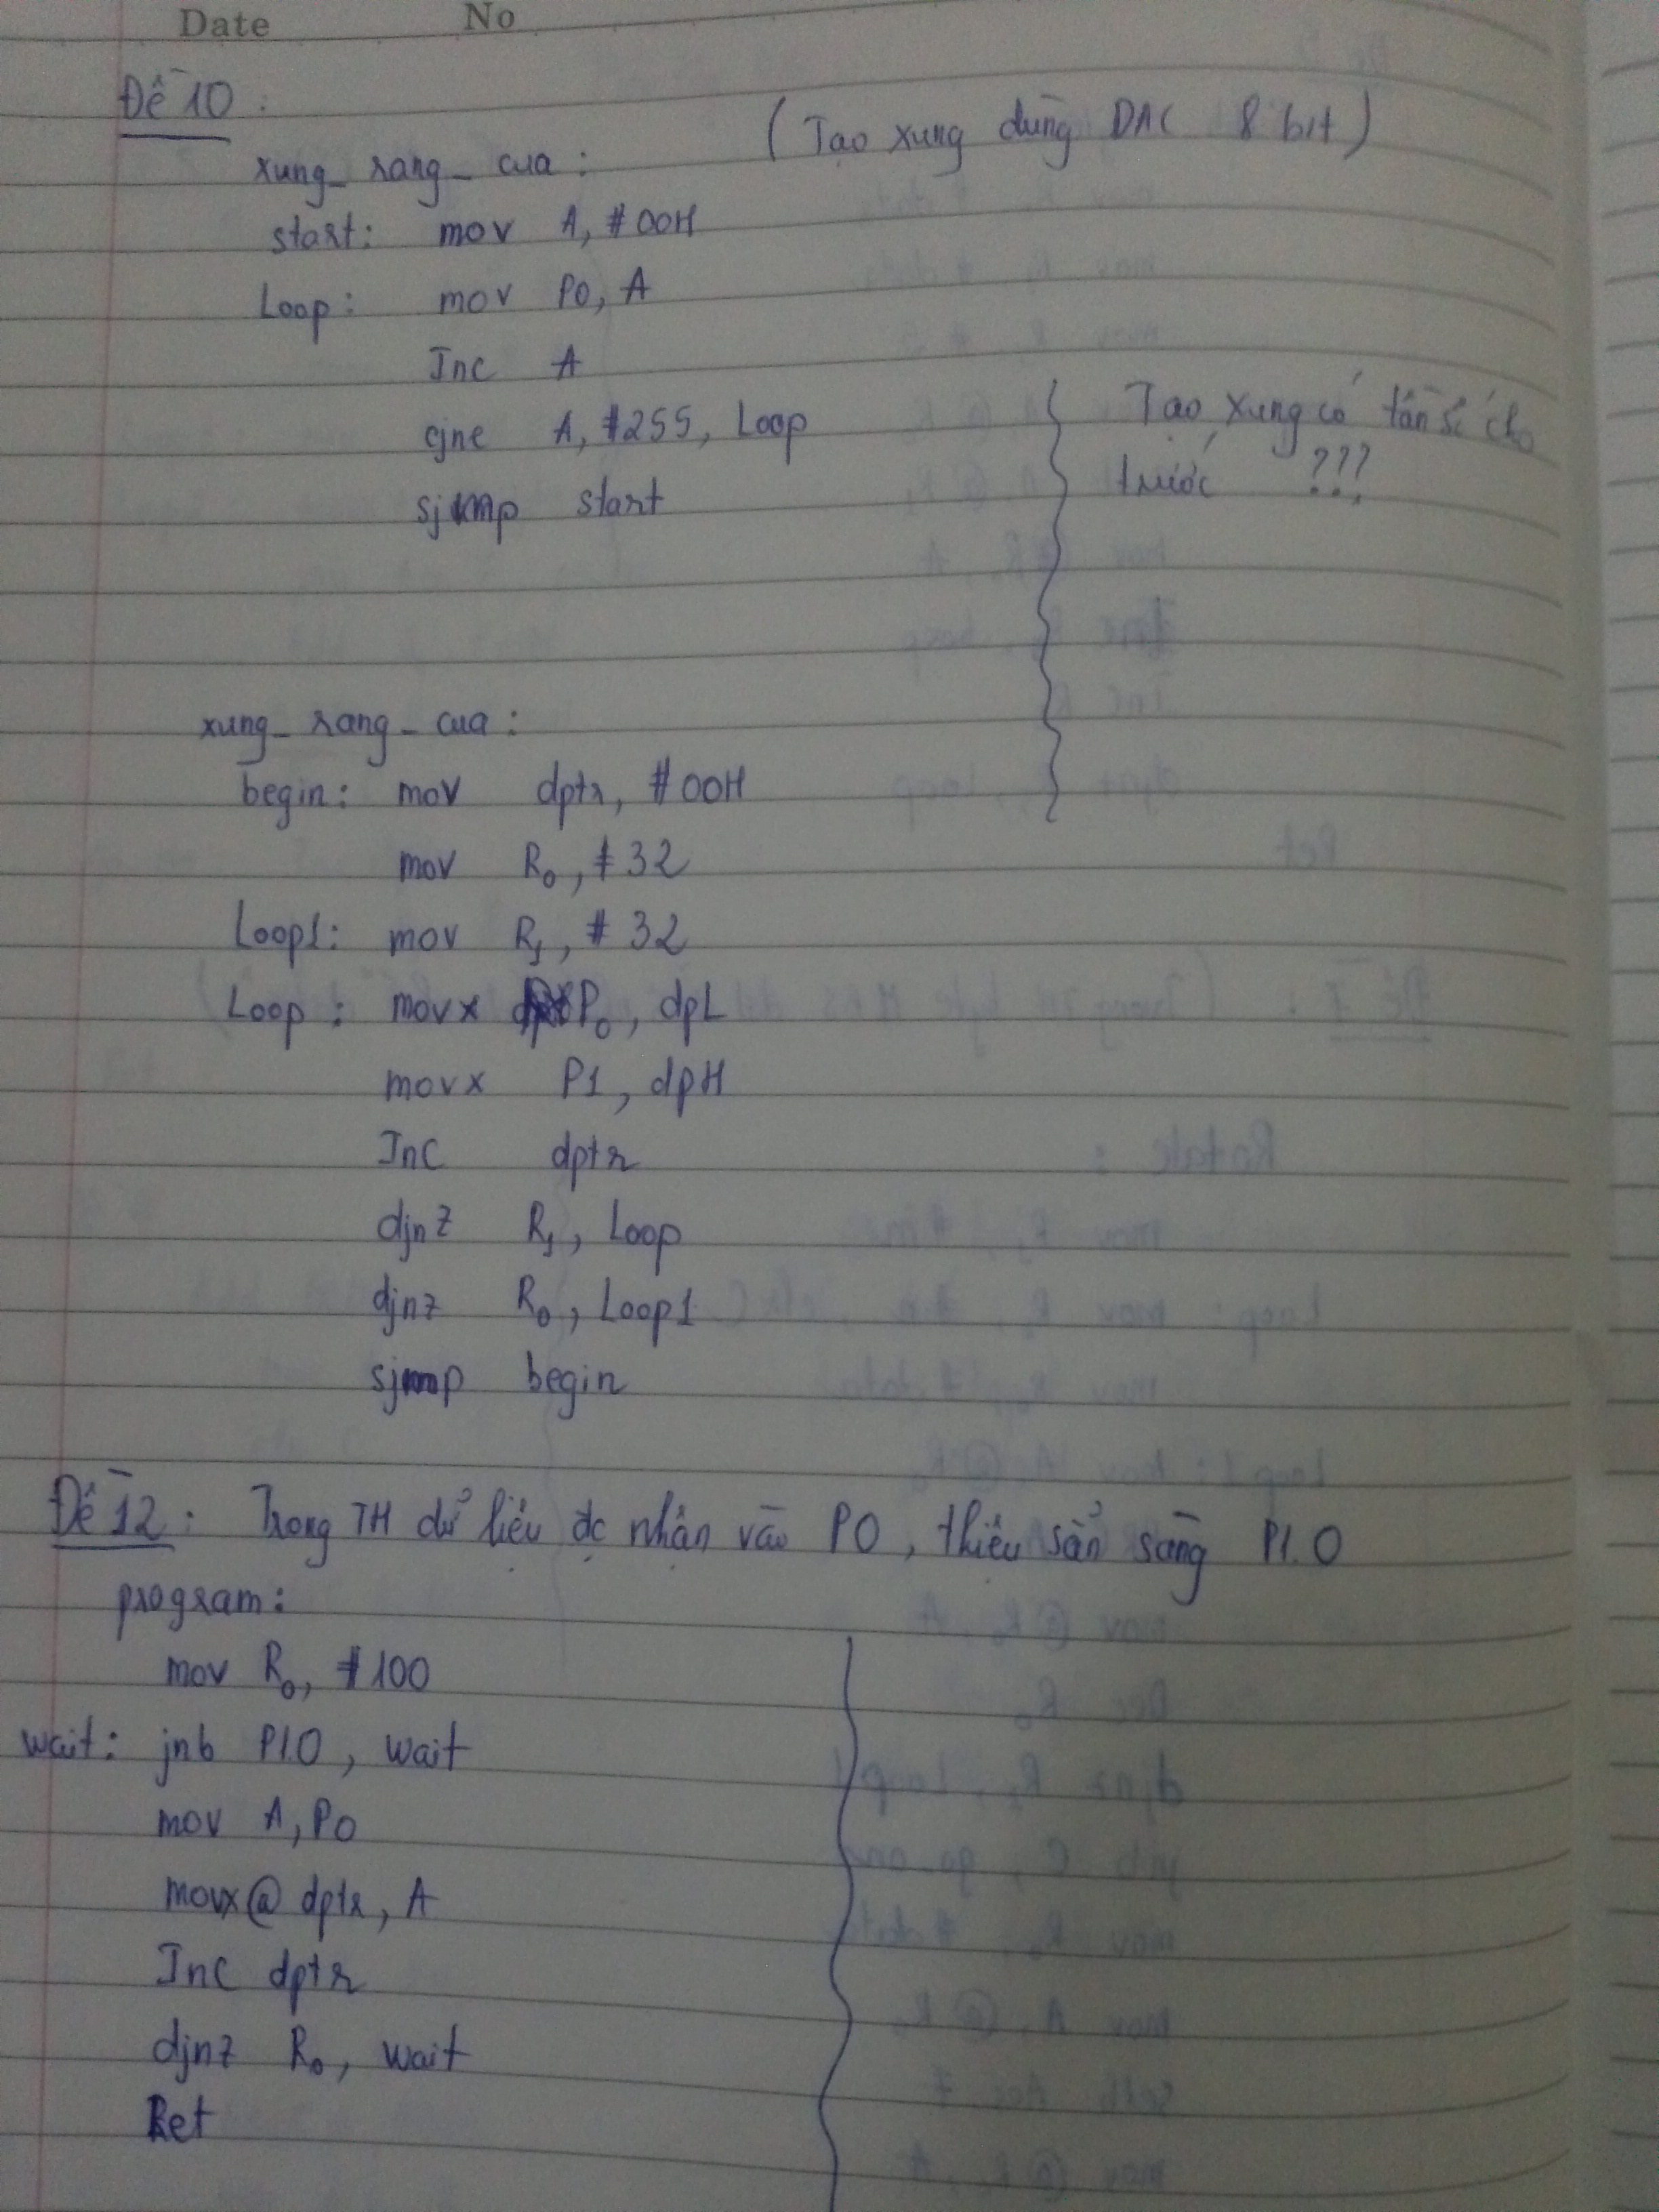 Date No
Đề 10 :
(Tạo xung dùng DAC 8 bit)
xung_rang_cua :
start: mov A, #00H
Loop: mov P0, A
Inc A
cjne A, #255, Loop
sjmp start
Tạo xung có tần số cho
trước ???
xung_rang_cua :
begin: mov dptr, #00H
mov R0, #32
Loop1: mov R1, #32
Loop : movx P0, dpL
movx P1, dpH
Inc dptr
djnz R1, Loop
djnz R0, Loop1
sjmp begin
Đề 12 : Trong TH dữ liệu đc nhận vào P0, thiêu sẳn sàng P1.0
program:
mov R0, #100
wait: jnb P1.0, wait
mov A, P0
movx @dptr, A
Inc dptr
djnz R0, wait
Ret